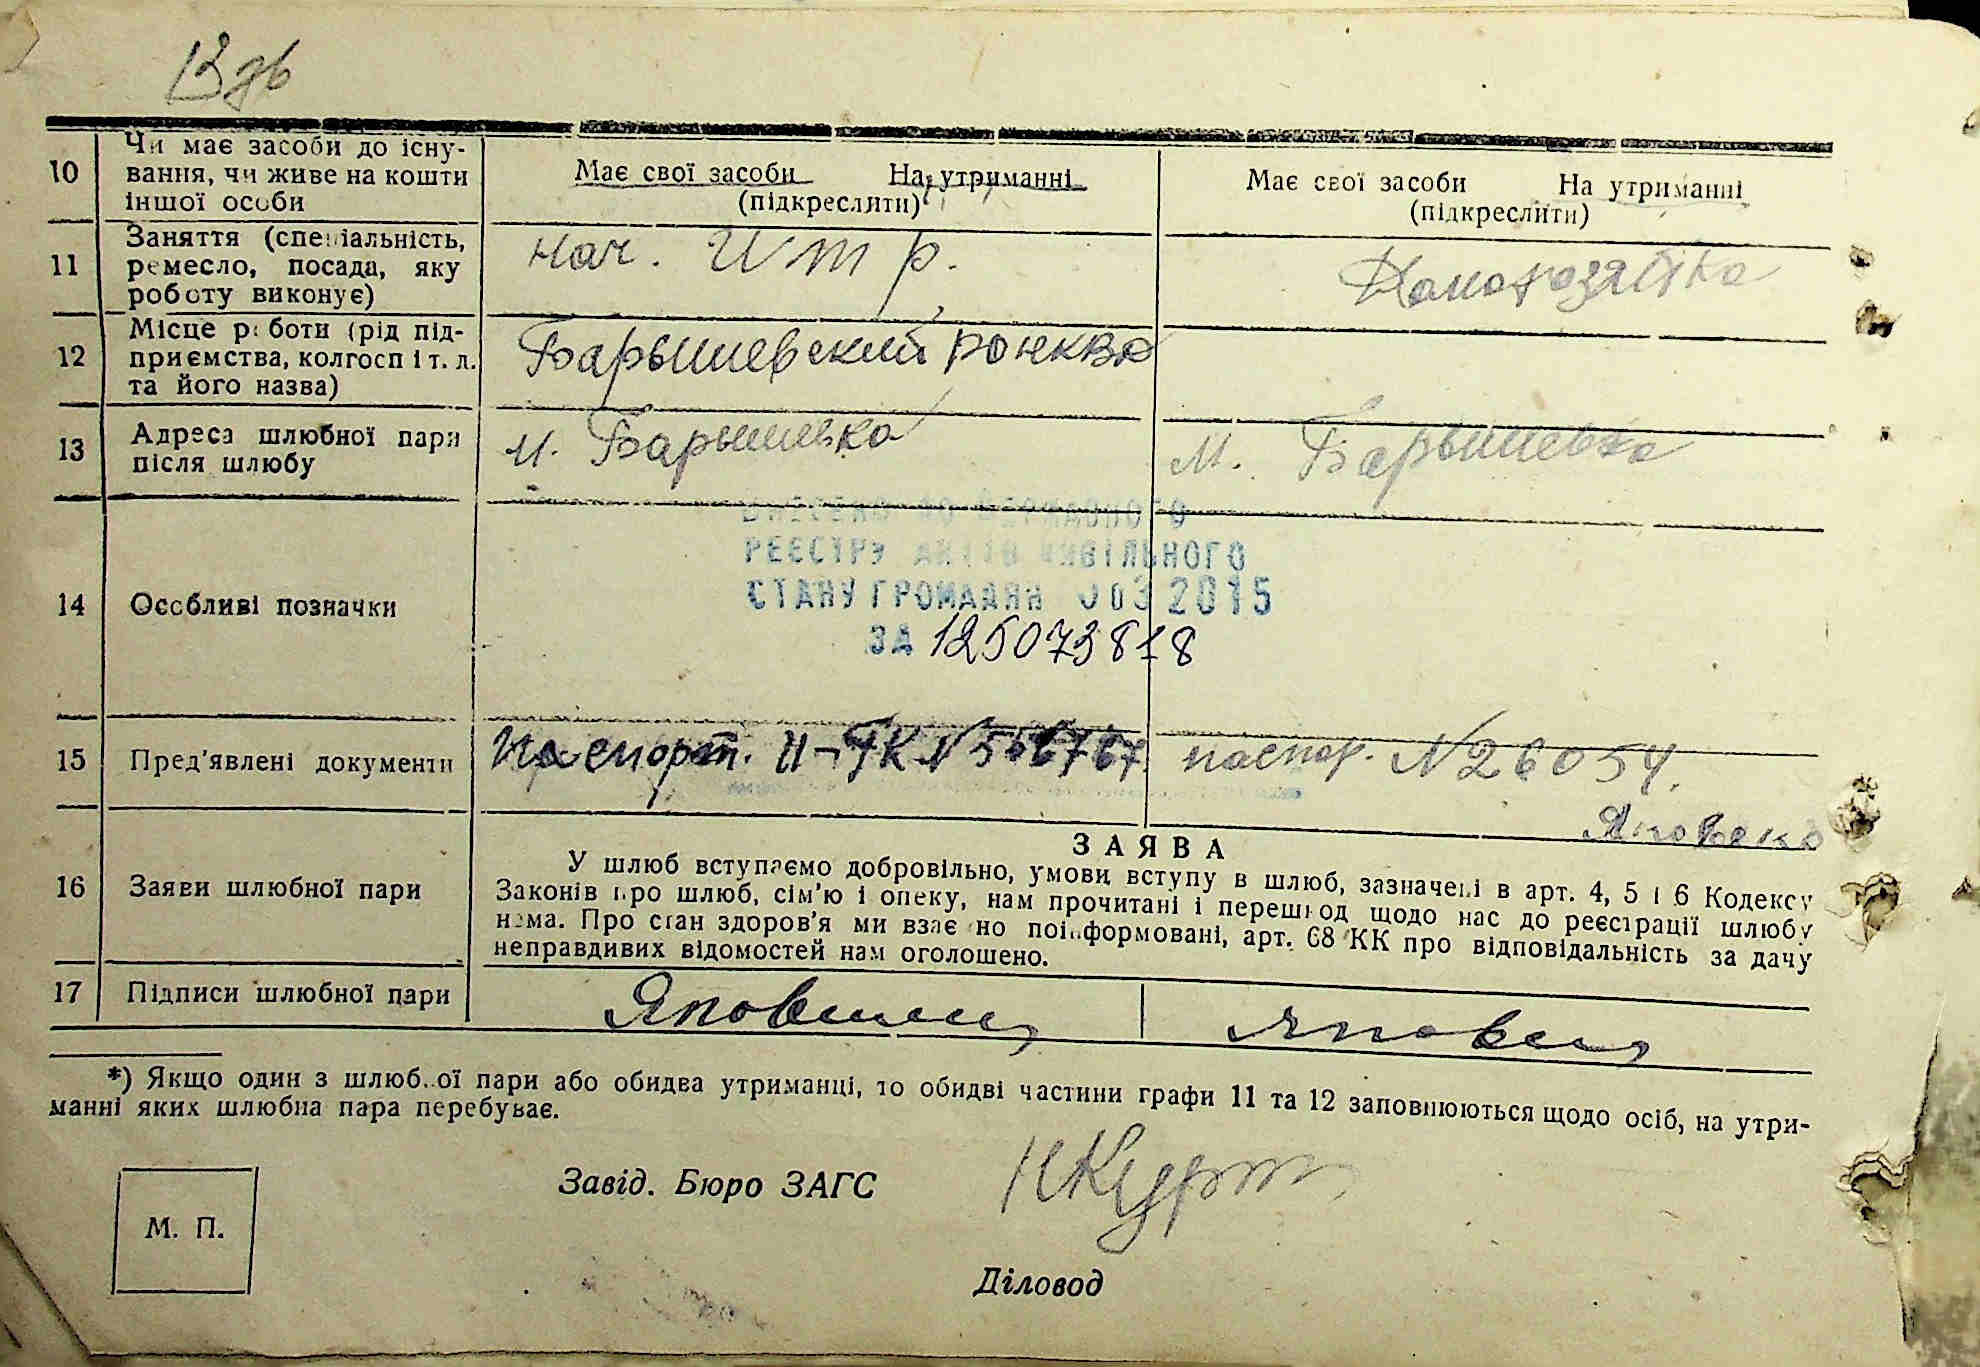 13 зв
10 Чи має засоби до існу-
вання, чи живе на кошти
іншої особи
Має свої засоби На утриманні
(підкреслити)
Має свої засоби На утриманні
(підкреслити)
11 Заняття (спеціальність,
ремесло, посада, яку
роботу виконує)
нач.
Домохозяйка
12 Місце роботи (рід під-
приємства, колгосп і т. д.
та його назва)
Барышевский
13 Адреса шлюбної пари
після шлюбу
м. Барышевка
м. Барышевка
14 Особливі позначки
ВНЕСЕНО ДО ДЕРЖАВНОГО
РЕЄСТРУ АКТІВ ЦИВІЛЬНОГО
СТАНУ ГРОМАДЯН 2015
ЗА 125073818
15 Пред'явлені документи
Паспорт.
паспор. № 26054.
16 Заяви шлюбної пари
ЗАЯВА
У шлюб вступаємо добровільно, умови вступу в шлюб, зазначені в арт. 4, 5 і 6 Кодексу
Законів про шлюб, сім'ю і опеку, нам прочитані і перешкод щодо нас до реєстрації шлюбу
нема. Про стан здоров'я ми взаємно поінформовані, арт. 68 КК про відповідальність за дачу
неправдивих відомостей нам оголошено.
17 Підписи шлюбної пари
*) Якщо один з шлюбної пари або обидва утриманці, то обидві частини графи 11 та 12 заповнюються щодо осіб, на утри-
манні яких шлюбна пара перебуває.
Завід. Бюро ЗАГС
М. П.
Діловод